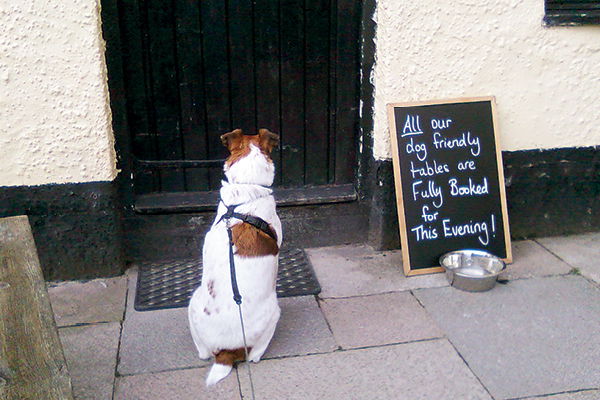 All our
dog friendly
tables are
Fully Booked
for
This Evening!